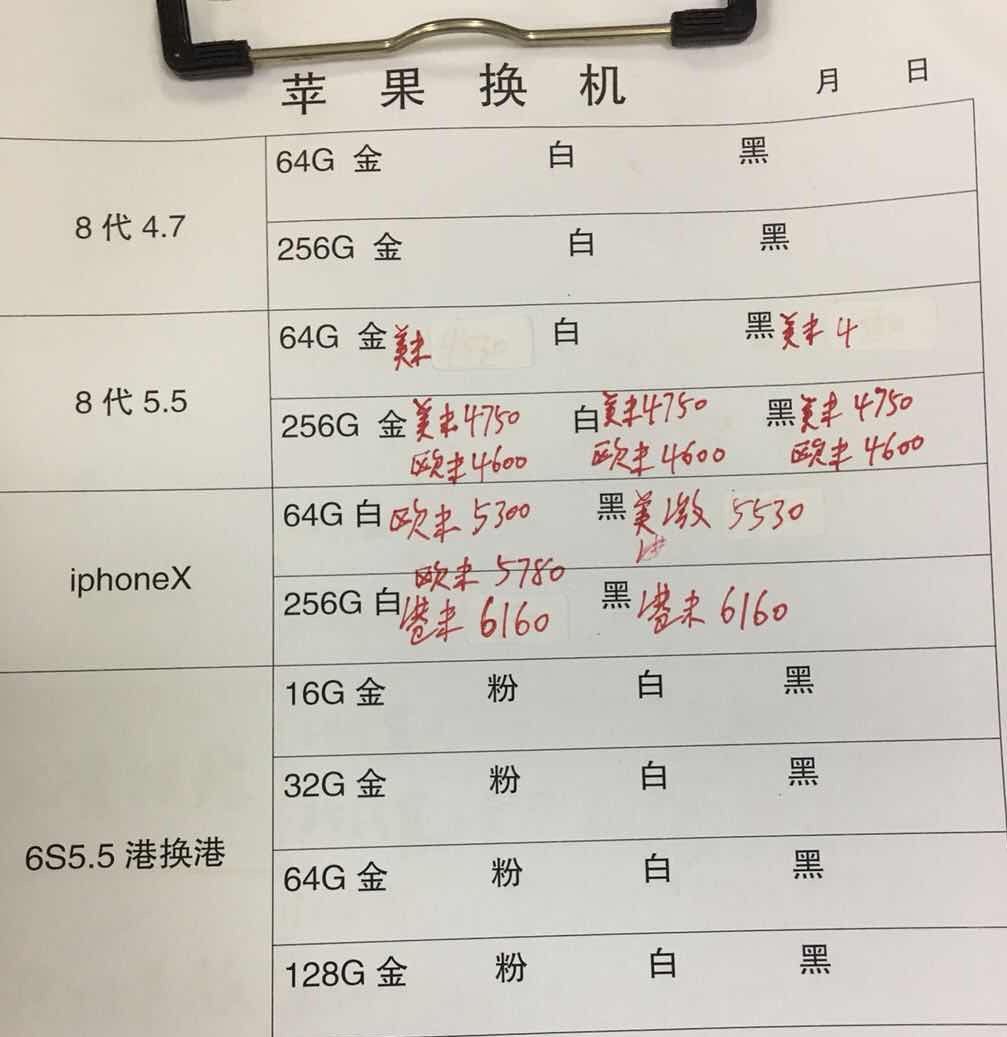 苹果换机 月 日
8代4.7
64G 金 白 黑
256G 金 白 黑
8代5.5
64G 金美未 白 黑美未 4
256G 金美未4750 白美未4750 黑美未 4750
欧未4600 欧未4600 欧未 4600
iphoneX
64G 白欧未 5300 黑美激 5530
欧未 5780
256G 白港未 6160 黑港未 6160
6S5.5 港换港
16G 金 粉 白 黑
32G 金 粉 白 黑
64G 金 粉 白 黑
128G 金 粉 白 黑